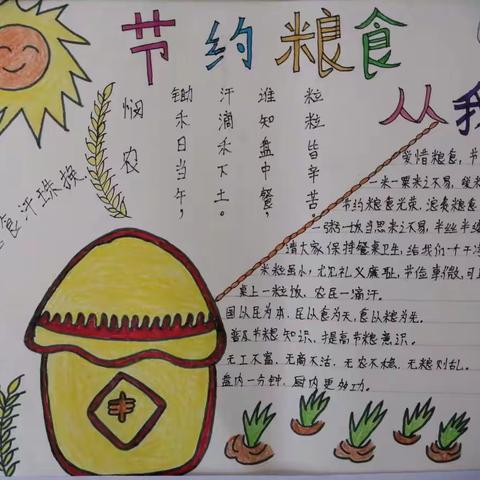 节约粮食
从我
悯农
锄禾日当午，
汗滴禾下土。
谁知盘中餐，
粒粒皆辛苦。
食汗珠换
爱惜粮食，节
一米一粟来之不易，
节约粮食光荣，浪费粮食
一粥一饭当思来之不易，半丝半缕
请大家保持餐桌卫生，给我们一个干净
米粒虽小，尤见礼义廉耻，节俭事微，可
桌上一粒饭，农民一滴汗。
国以民为本，民以食为天，食以粮为先。
普及节粮知识、提高节粮意识。
无工不富，无商不活，无农不稳，无粮则乱。
盘内一分钟，田内更多功。
丰